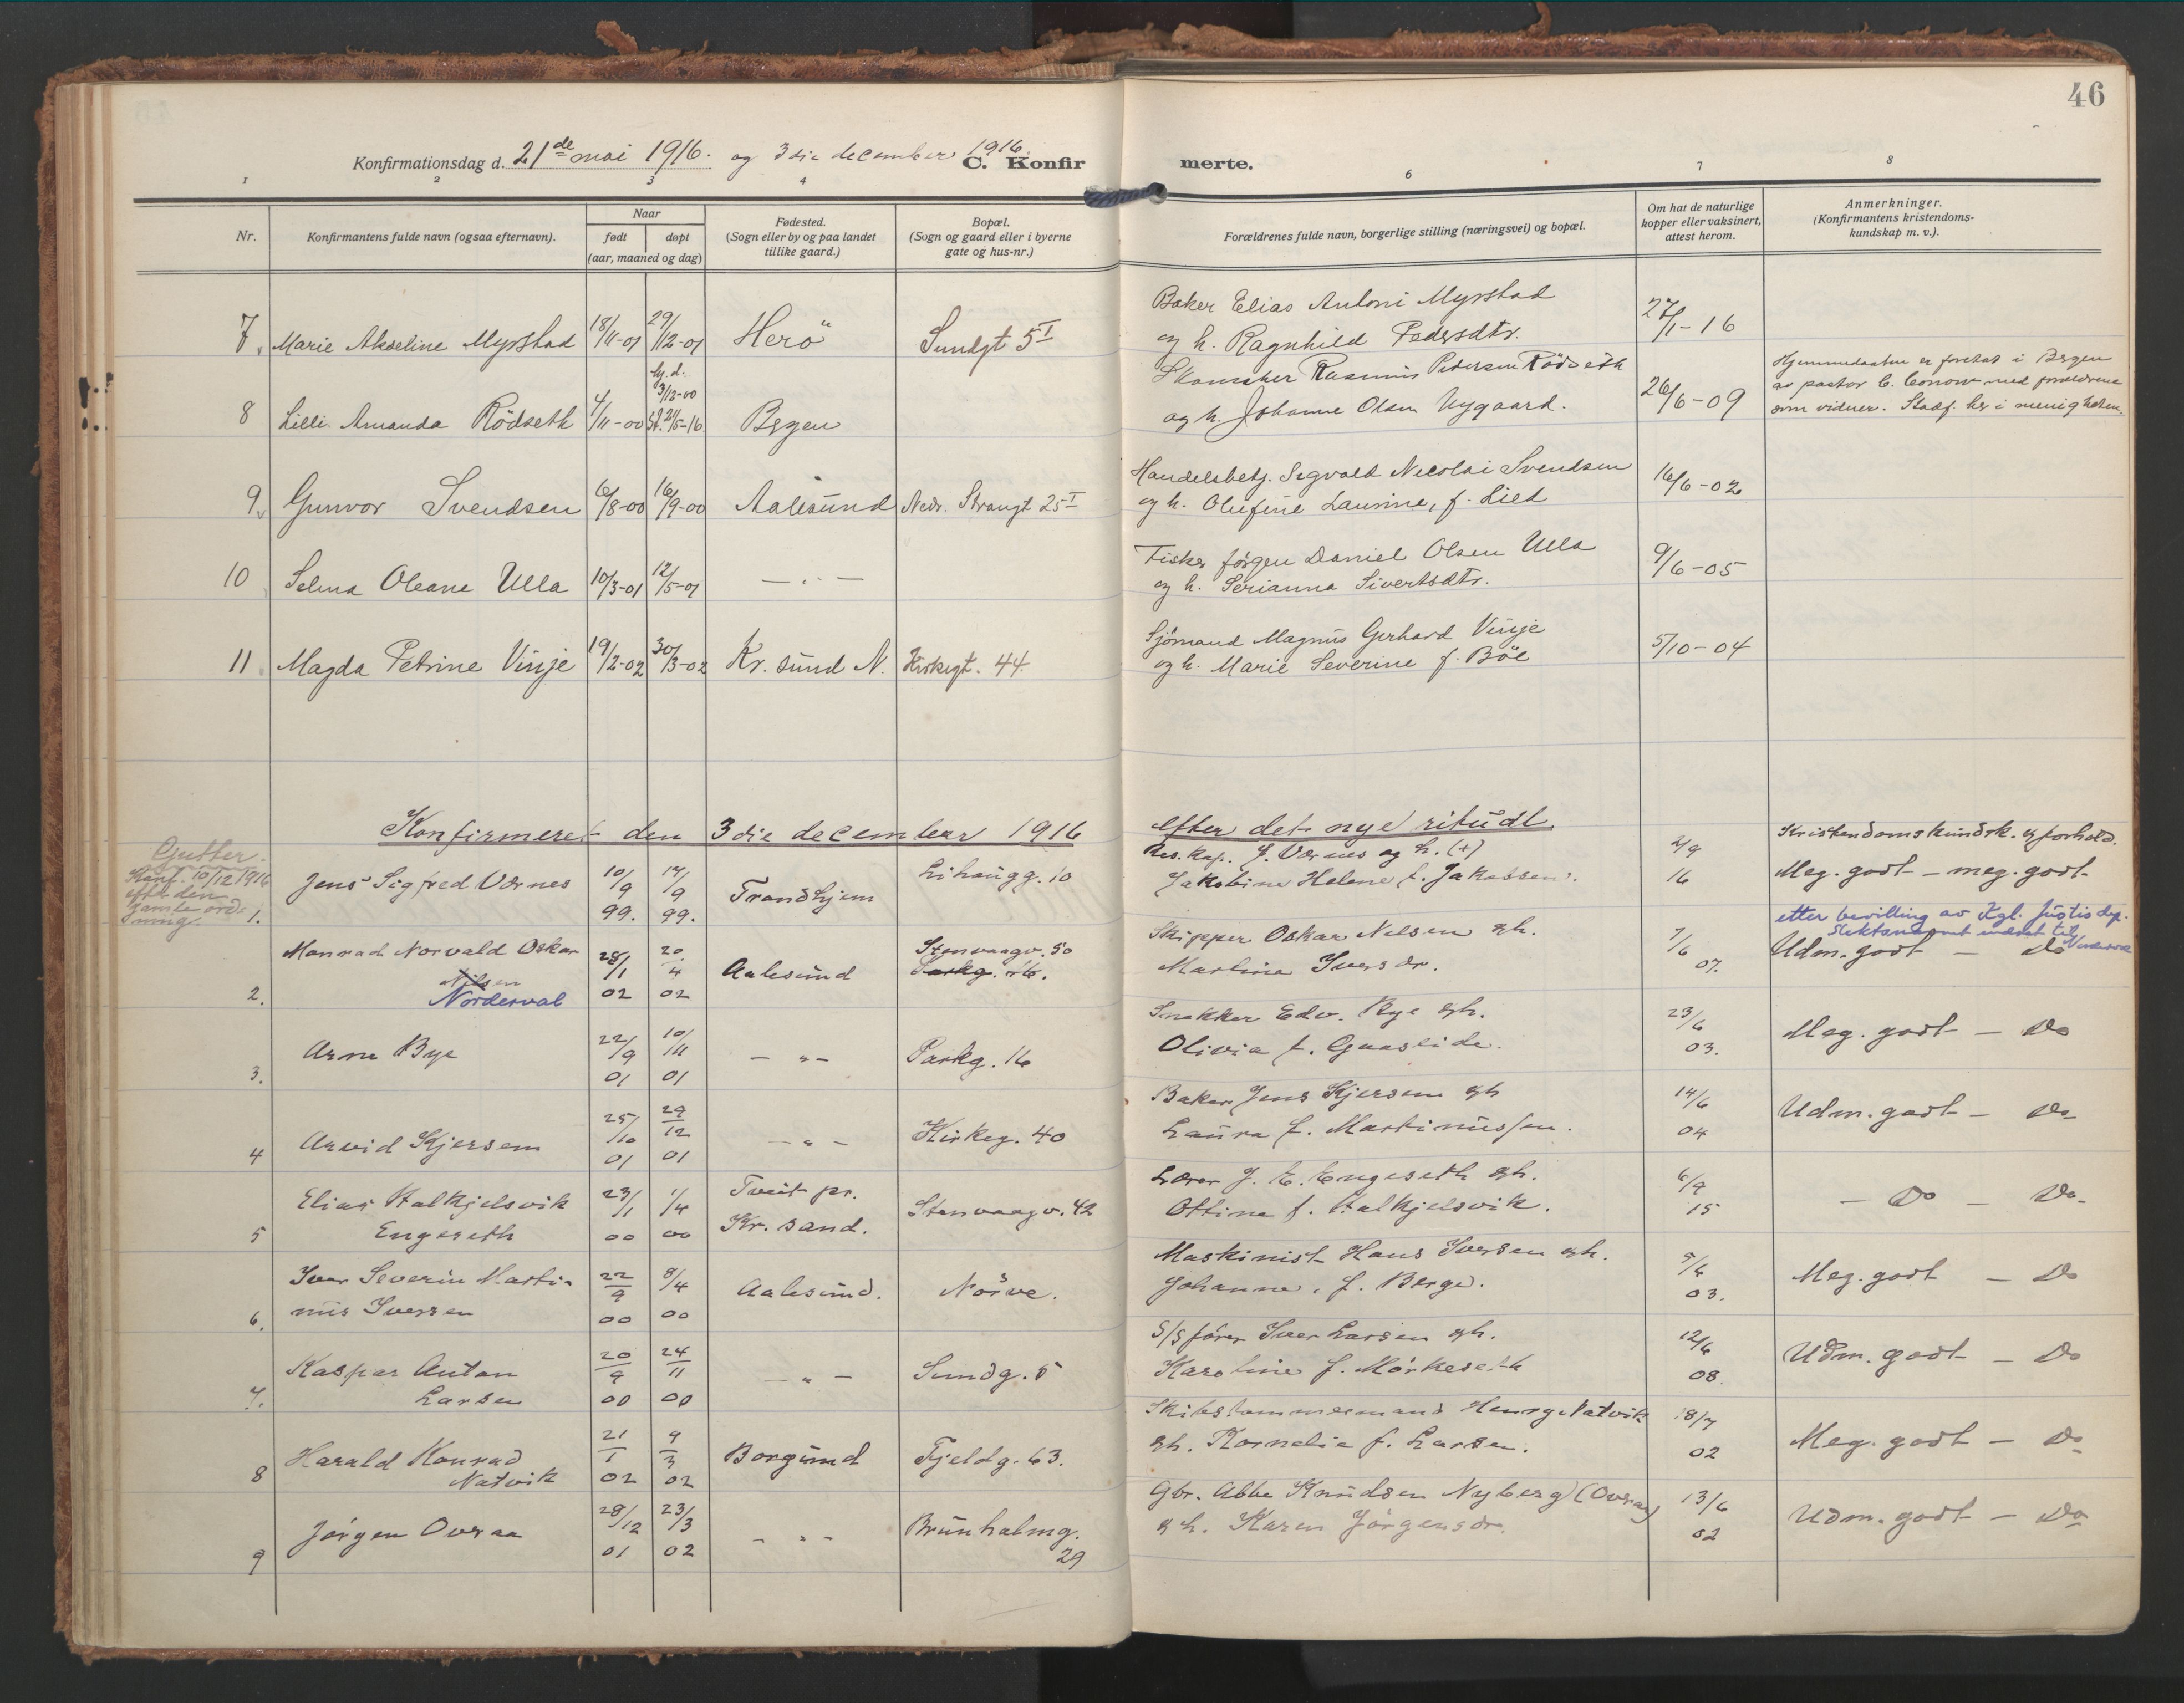 46
Konfirmationsdag d. 21de mai 1916. og 3die december 1916. C. Konfirmerte.
1 2 3 4 6 7 8
Nr.
Konfirmantens fulde navn (ogsaa efternavn).
Naar
født døpt
(aar, maaned og dag)
Fødested.
(Sogn eller by og paa landet
tillike gaard.)
Bopæl.
(Sogn og gaard eller i byerne
gate og hus-nr.)
Forældrenes fulde navn, borgerlige stilling (næringsvei) og bopæl.
Om hat de naturlige
kopper eller vaksinert,
attest herom.
Anmerkninger.
(Konfirmantens kristendoms-
kundskap m. v.).
Baker Elias Antoni Myrstad
7. Marie Akseline Myrstad 18/11-01 29/12-01 Herö Sundgt 5 I og h. Ragnhild Pedersdtr. 27/1-16
hj.d. 3/12-00 Skomaker Rasmus Petersen Rödseth Hjemmedaaben er foretat i Bergen
av pastor C. Conow med forældrene
8 Lilli Amanda Rödseth 4/11-00 St. 21/5-16 Bergen og h. Johanne Olsen Nygaard. 26/6-09 som vidner. Stadf. her i menigheten.
Handelsbetj. Sigvald Nicolai Svendsen
9. Gunvor Svendsen 6/8-00 16/9-00 Aalesund Nedr. Strangt 25 I og h. Olufine Laurine, f. Lied 16/6-02
Fisker Jörgen Daniel Olsen Ulla
10 Selma Oleane Ulla 10/3-01 12/5-01 — „ — og h. Serianna Sivertsdtr. 9/6-05
Sjömand Magnus Gerhard Vinje
11. Magda Petrine Vinje 19/2-02 30/3-02 Kr. sund N. Kirkegt. 44 og h. Marie Severine f. Böe 5/10-04
Konfirmeret den 3die december 1916 efter det nye ritual.
Gutter.
Konf. 10/12 1916
efter den
gamle ord-
ning.
Kristendomskundsk. og forhold.
Res. kap. J. Værnes og h. (+)
1. Jens Sigfred Værnes 10/9 99. 17/9 99. Trondhjem Lihaugg. 10 Jakobine Helene f. Jakobsen. 2/9 16 Meg. godt – meg. godt
etter bevilling av Kgl. Justisdep.
slektsnavnet endret til
Norderval
Monrad Norvald Oskar Stenvaagv. 50 Skipper Oskar Nilsen gh.
Nilsen
2. Norderval 28/1 02 20/4 02 Aalesund Parkg. 16. Martine Iversdr. 7/6 07. Udm. godt – Do
Snekker Edv. Bye gh.
3. Arne Bye 22/9 01 10/11 01 — „ — Parkg. 16 Olivia f. Gaaseide. 23/6 03. Meg. godt – Do
Baker Jens Kjersem gh
4 Arvid Kjersem 25/10 01 29/12 01 — „ — Kirkeg. 40 Laura f. Martinussen. 14/6 04 Udm. godt – Do
Elias Halkjelsvik Tveit pr. Lærer J. E. Engeseth gh.
5 Engeseth 23/1 00 1/4 00 Kr. sand. Stenvaagv. 42 Ottine f. Halkjelsvik. 6/9 15 – Do – Do
Iver Severin Marti- Maskinist Hans Iversen gh.
6. nus Iversen 22/9 00 8/4 00 Aalesund. Nörve. Johanne, f. Berge. 5/6 03. Meg. godt – Do
Kaspar Anton S/S förer Iver Larsen gh.
7. Larsen 20/9 00 24/11 00 — „ — Sundg. 5 Karoline f. Mörkeseth 12/6 08. Udm. godt – Do
Harald Konrad Skibstømmermand Henry Natvik
8 Natvik 21/1 02 9/3 02 Borgund Fjeldg. 63. gh. Kornelia f. Larsen. 18/7 02 Meg. godt – Do
Gbr. Abbe Knudsen Nyberg (Overaa)
9 Jörgen Overaa 28/12 01 23/3 02 — „ — Brunholmg. 29 gh. Karen Jörgensdr. 13/6 02 Udm. godt – Do